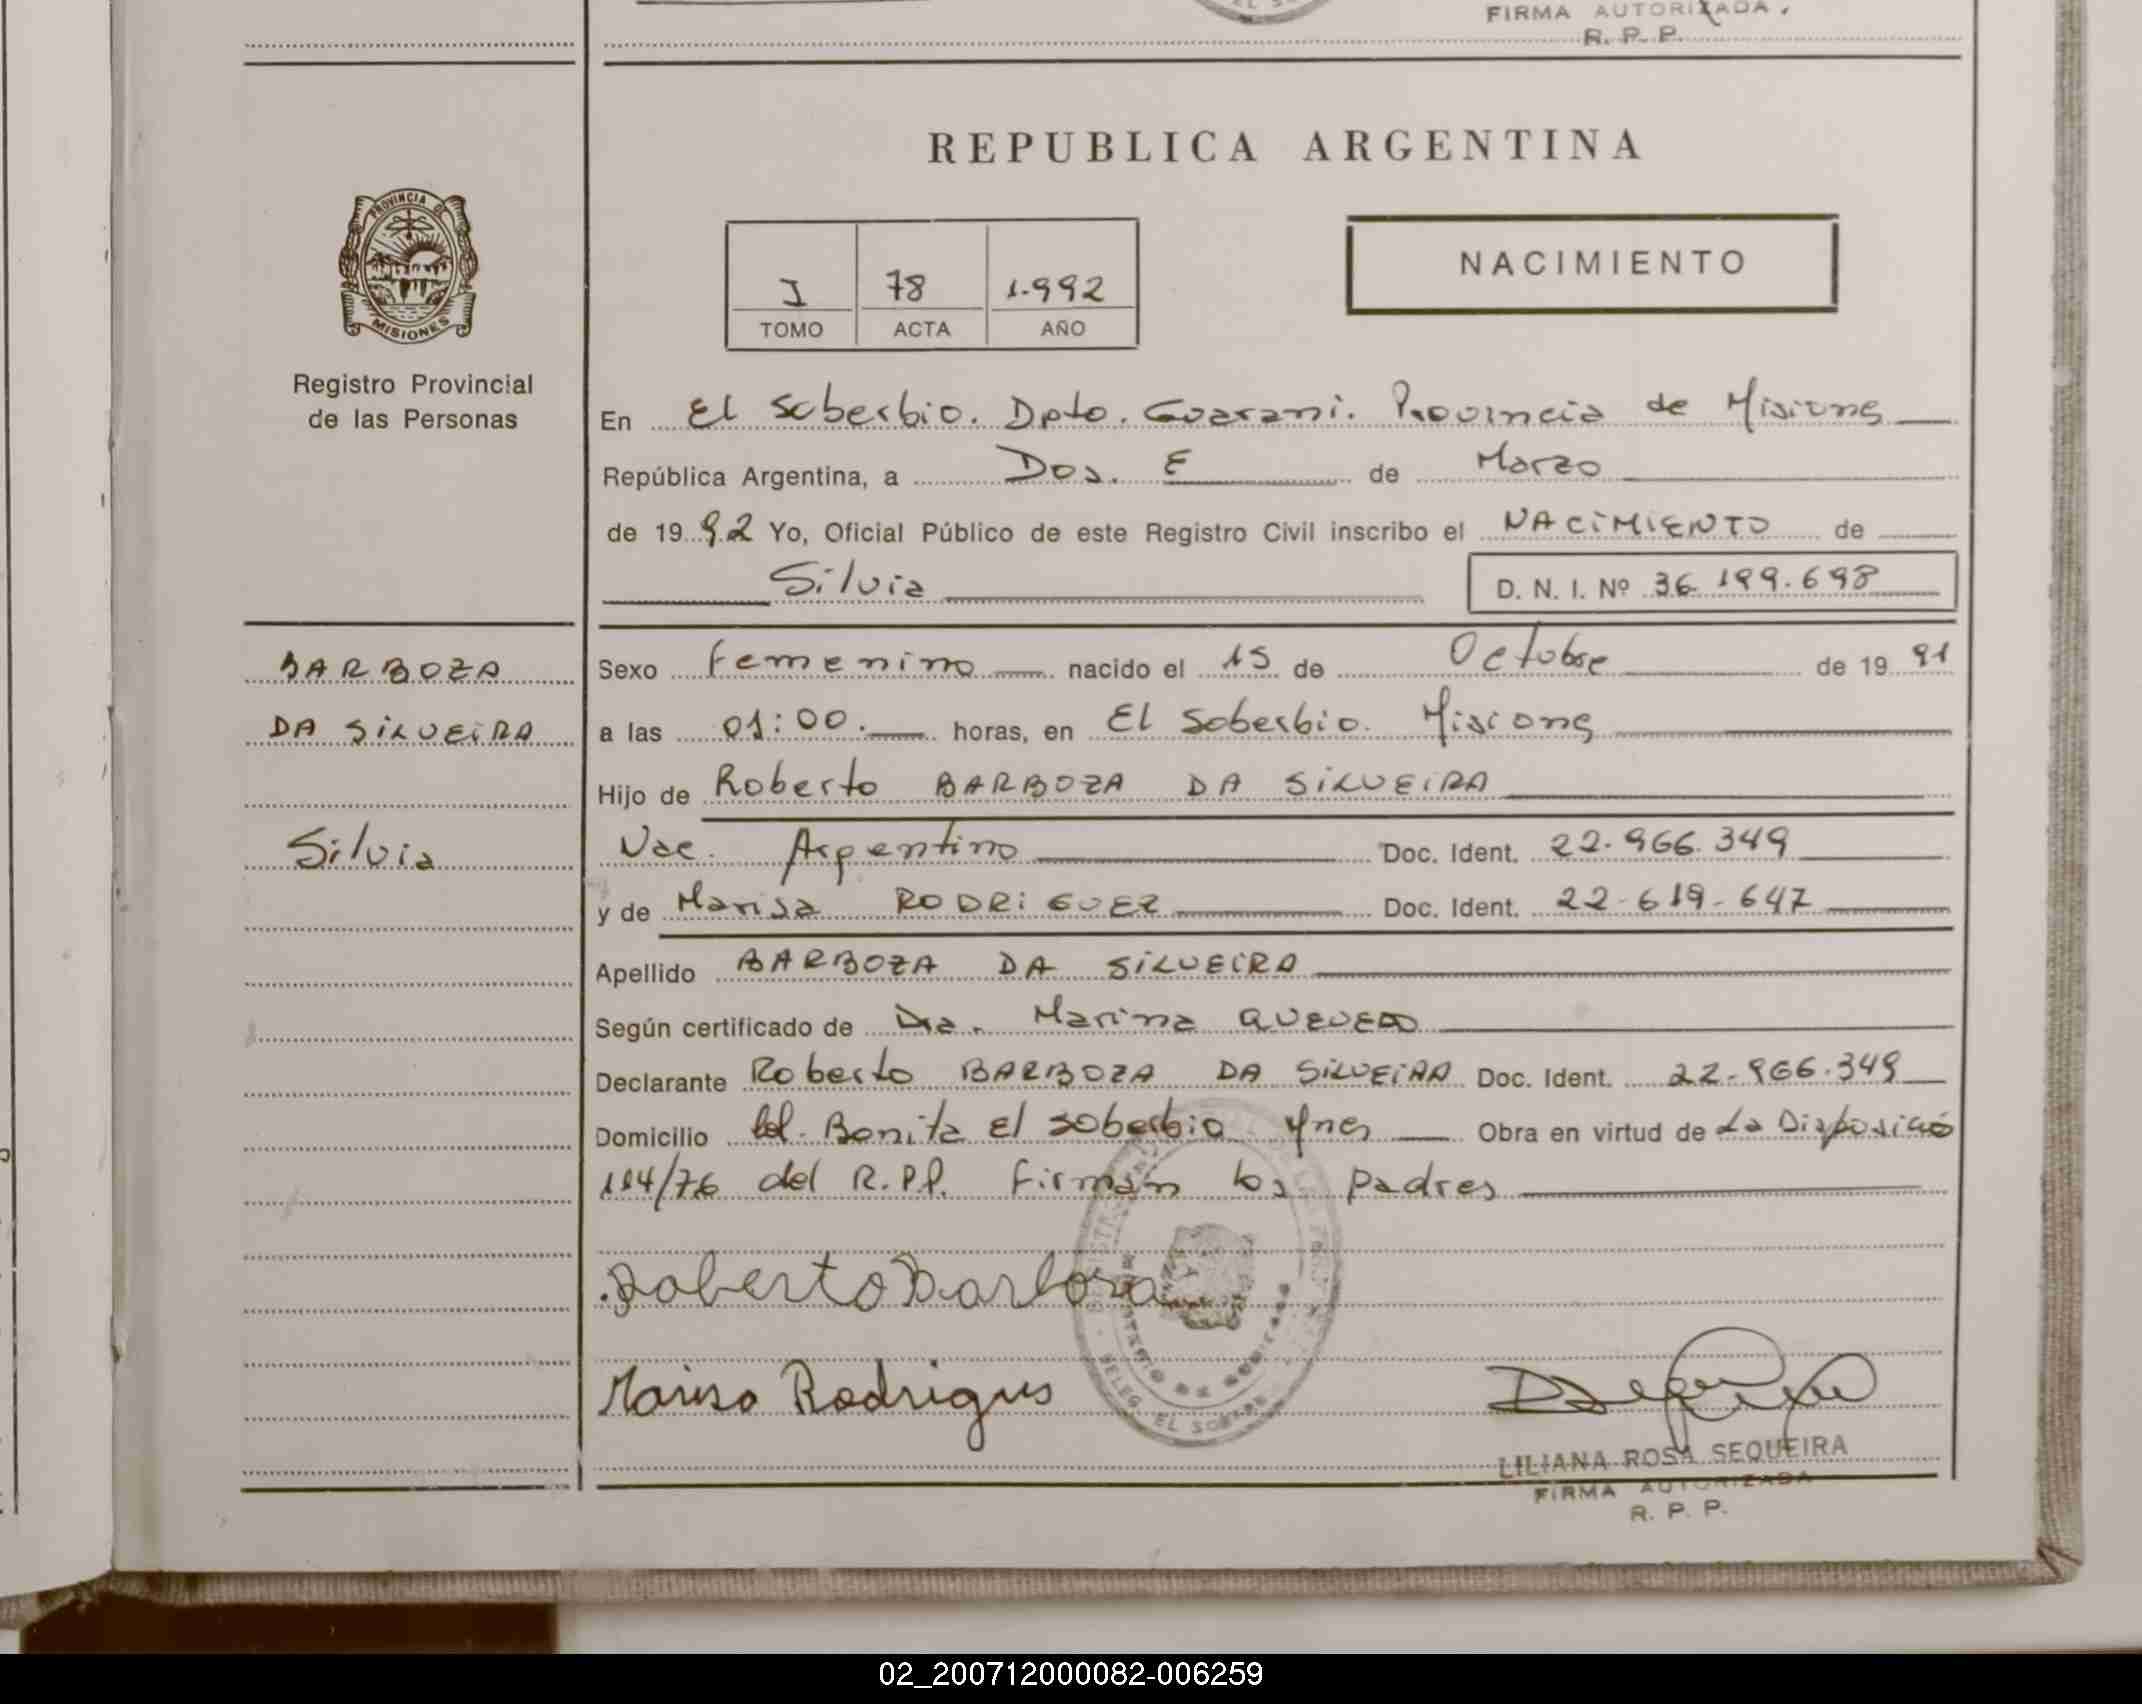 FIRMA AUTORIZADA.
R. P. P.
REPUBLICA ARGENTINA
PROVINCIA DE
MISIONES
Registro Provincial
de las Personas
I 78 1.992
TOMO ACTA AÑO
NACIMIENTO
En El Soberbio. Dpto. Guarani. Provincia de Misiones
República Argentina, a Dos. E de Marzo
de 1992 Yo, Oficial Público de este Registro Civil inscribo el NACIMIENTO de
Silvia D. N. I. Nº 36.199.698
BARBOZA
DA SILVEIRA
Silvia
Sexo Femenino nacido el 15 de Octubre de 1991
a las 01:00. horas, en El Soberbio. Misiones
Hijo de Roberto BARBOZA DA SILVEIRA
Nac. Argentino Doc. Ident. 22.966.349
y de Marisa RODRIGUEZ Doc. Ident. 22-619-647
Apellido BARBOZA DA SILVEIRA
Según certificado de Dra. Marina QUEVEDO
Declarante Roberto BARBOZA DA SILVEIRA Doc. Ident. 22-966.349
Domicilio Col. Bonita El Soberbio Mnes Obra en virtud de La Disposició
114/76 del R.P.P. Firman los padres
Roberto Barboza
Marisa Rodrigues
DELEG EL SOBERB
LILIANA ROSA SEQUEIRA
FIRMA AUTORIZADA
R. P. P.
02_200712000082-006259